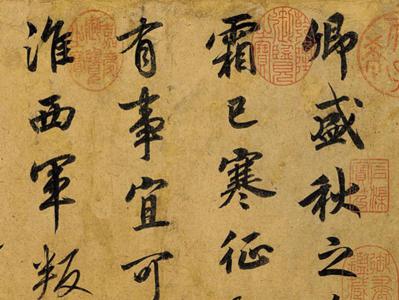 卿盛秋之
霜已寒征
有事宜可
淮西軍叛